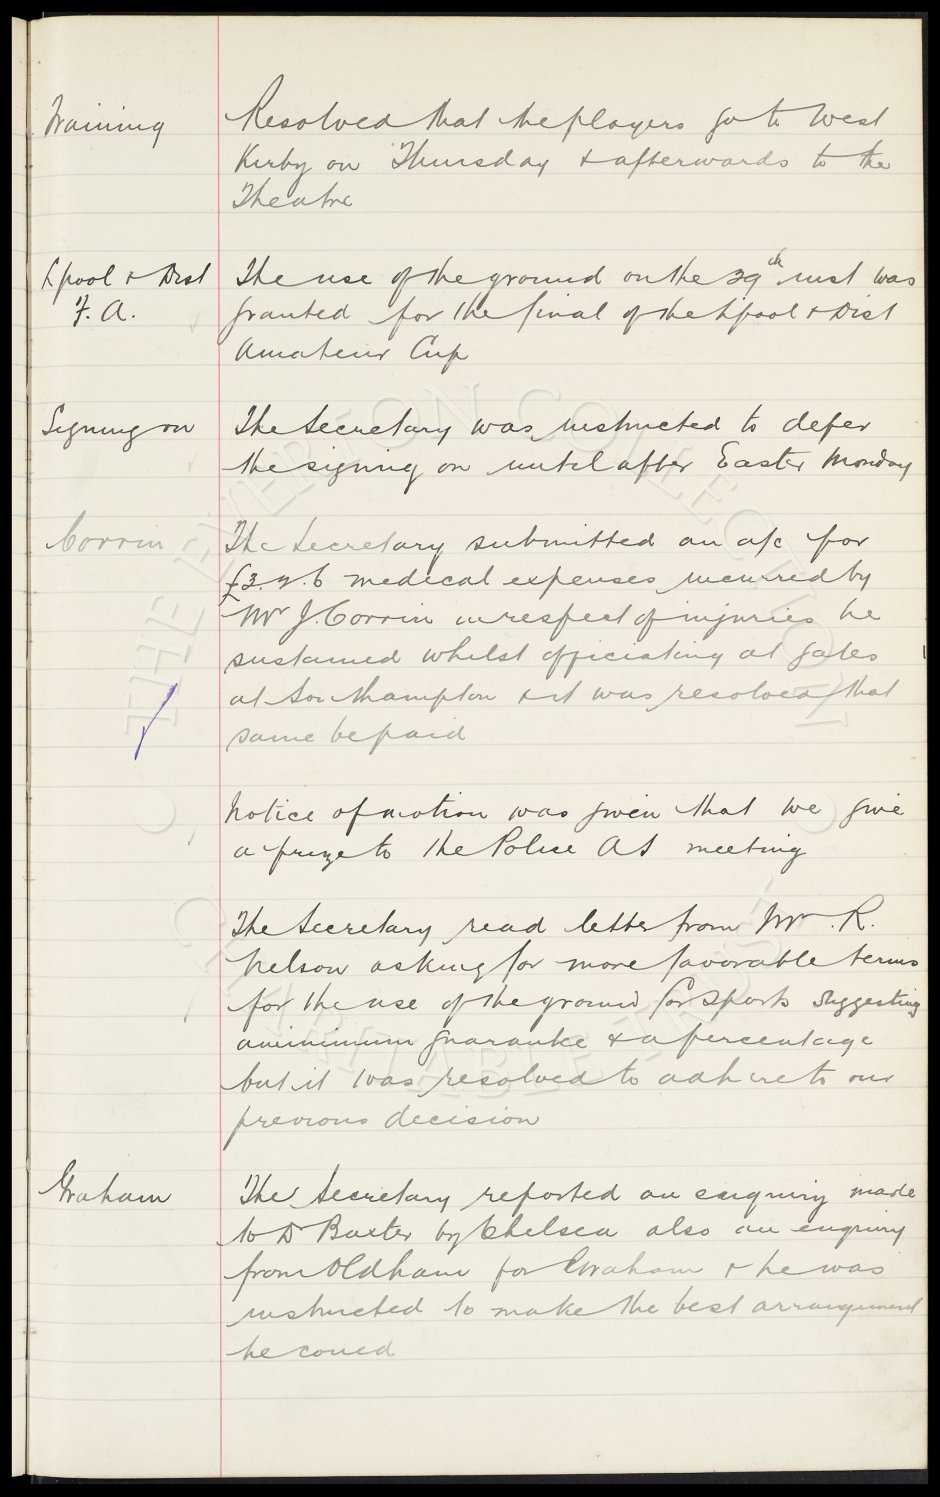 Training Resolved that the players go to West
Kirby on Thursday & afterwards to the
Theatre
L'pool & Dist The use of the ground on the 29th inst was
F. A. granted for the final of the L'pool & Dist
Amateur Cup
Signing on The Secretary was instructed to defer
the signing on until after Easter Monday
Corrin The Secretary submitted an a/c for
£3.9.6 medical expenses incurred by
Mr J. Corrin in respect of injuries he
sustained whilst officiating at gates
at Southampton & it was resolved that
same be paid
Notice of motion was given that we give
a prize to the Police AS meeting
The Secretary read letter from Mr. R.
Nelson asking for more favorable terms
for the use of the ground for Sports suggesting
a minimum guarantee & a percentage
but it was resolved to adhere to our
previous decision
Graham The Secretary reported an enquiry made
to Dr Baxter by Chelsea also an enquiry
from Oldham for Graham & he was
instructed to make the best arrangement
he could
THE EVERTON COLLECTION
CHARITABLE TRUST